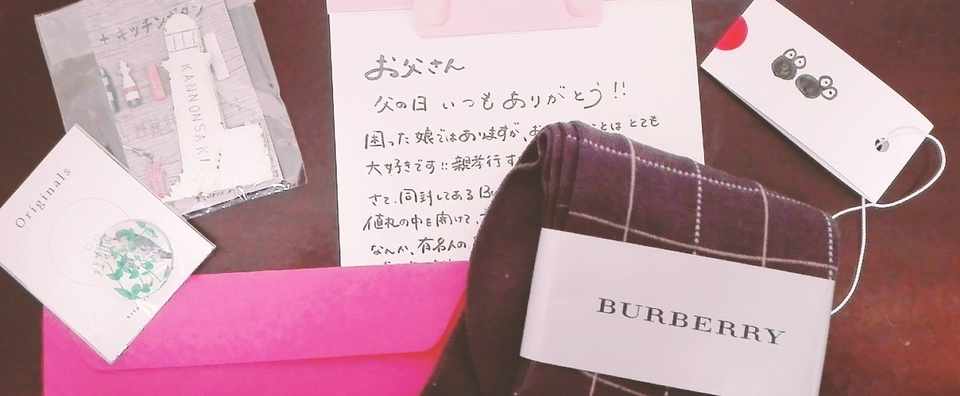 キッチンボタン
KANNONSAKI
Originals
お父さん
父の日 いつもありがとう!!
困った娘ではありますが、お
ことは とても
大好きです!! 親孝行す
さて、同封してある Bu
値札の中を開けて、
なんか、有名人の
BURBERRY